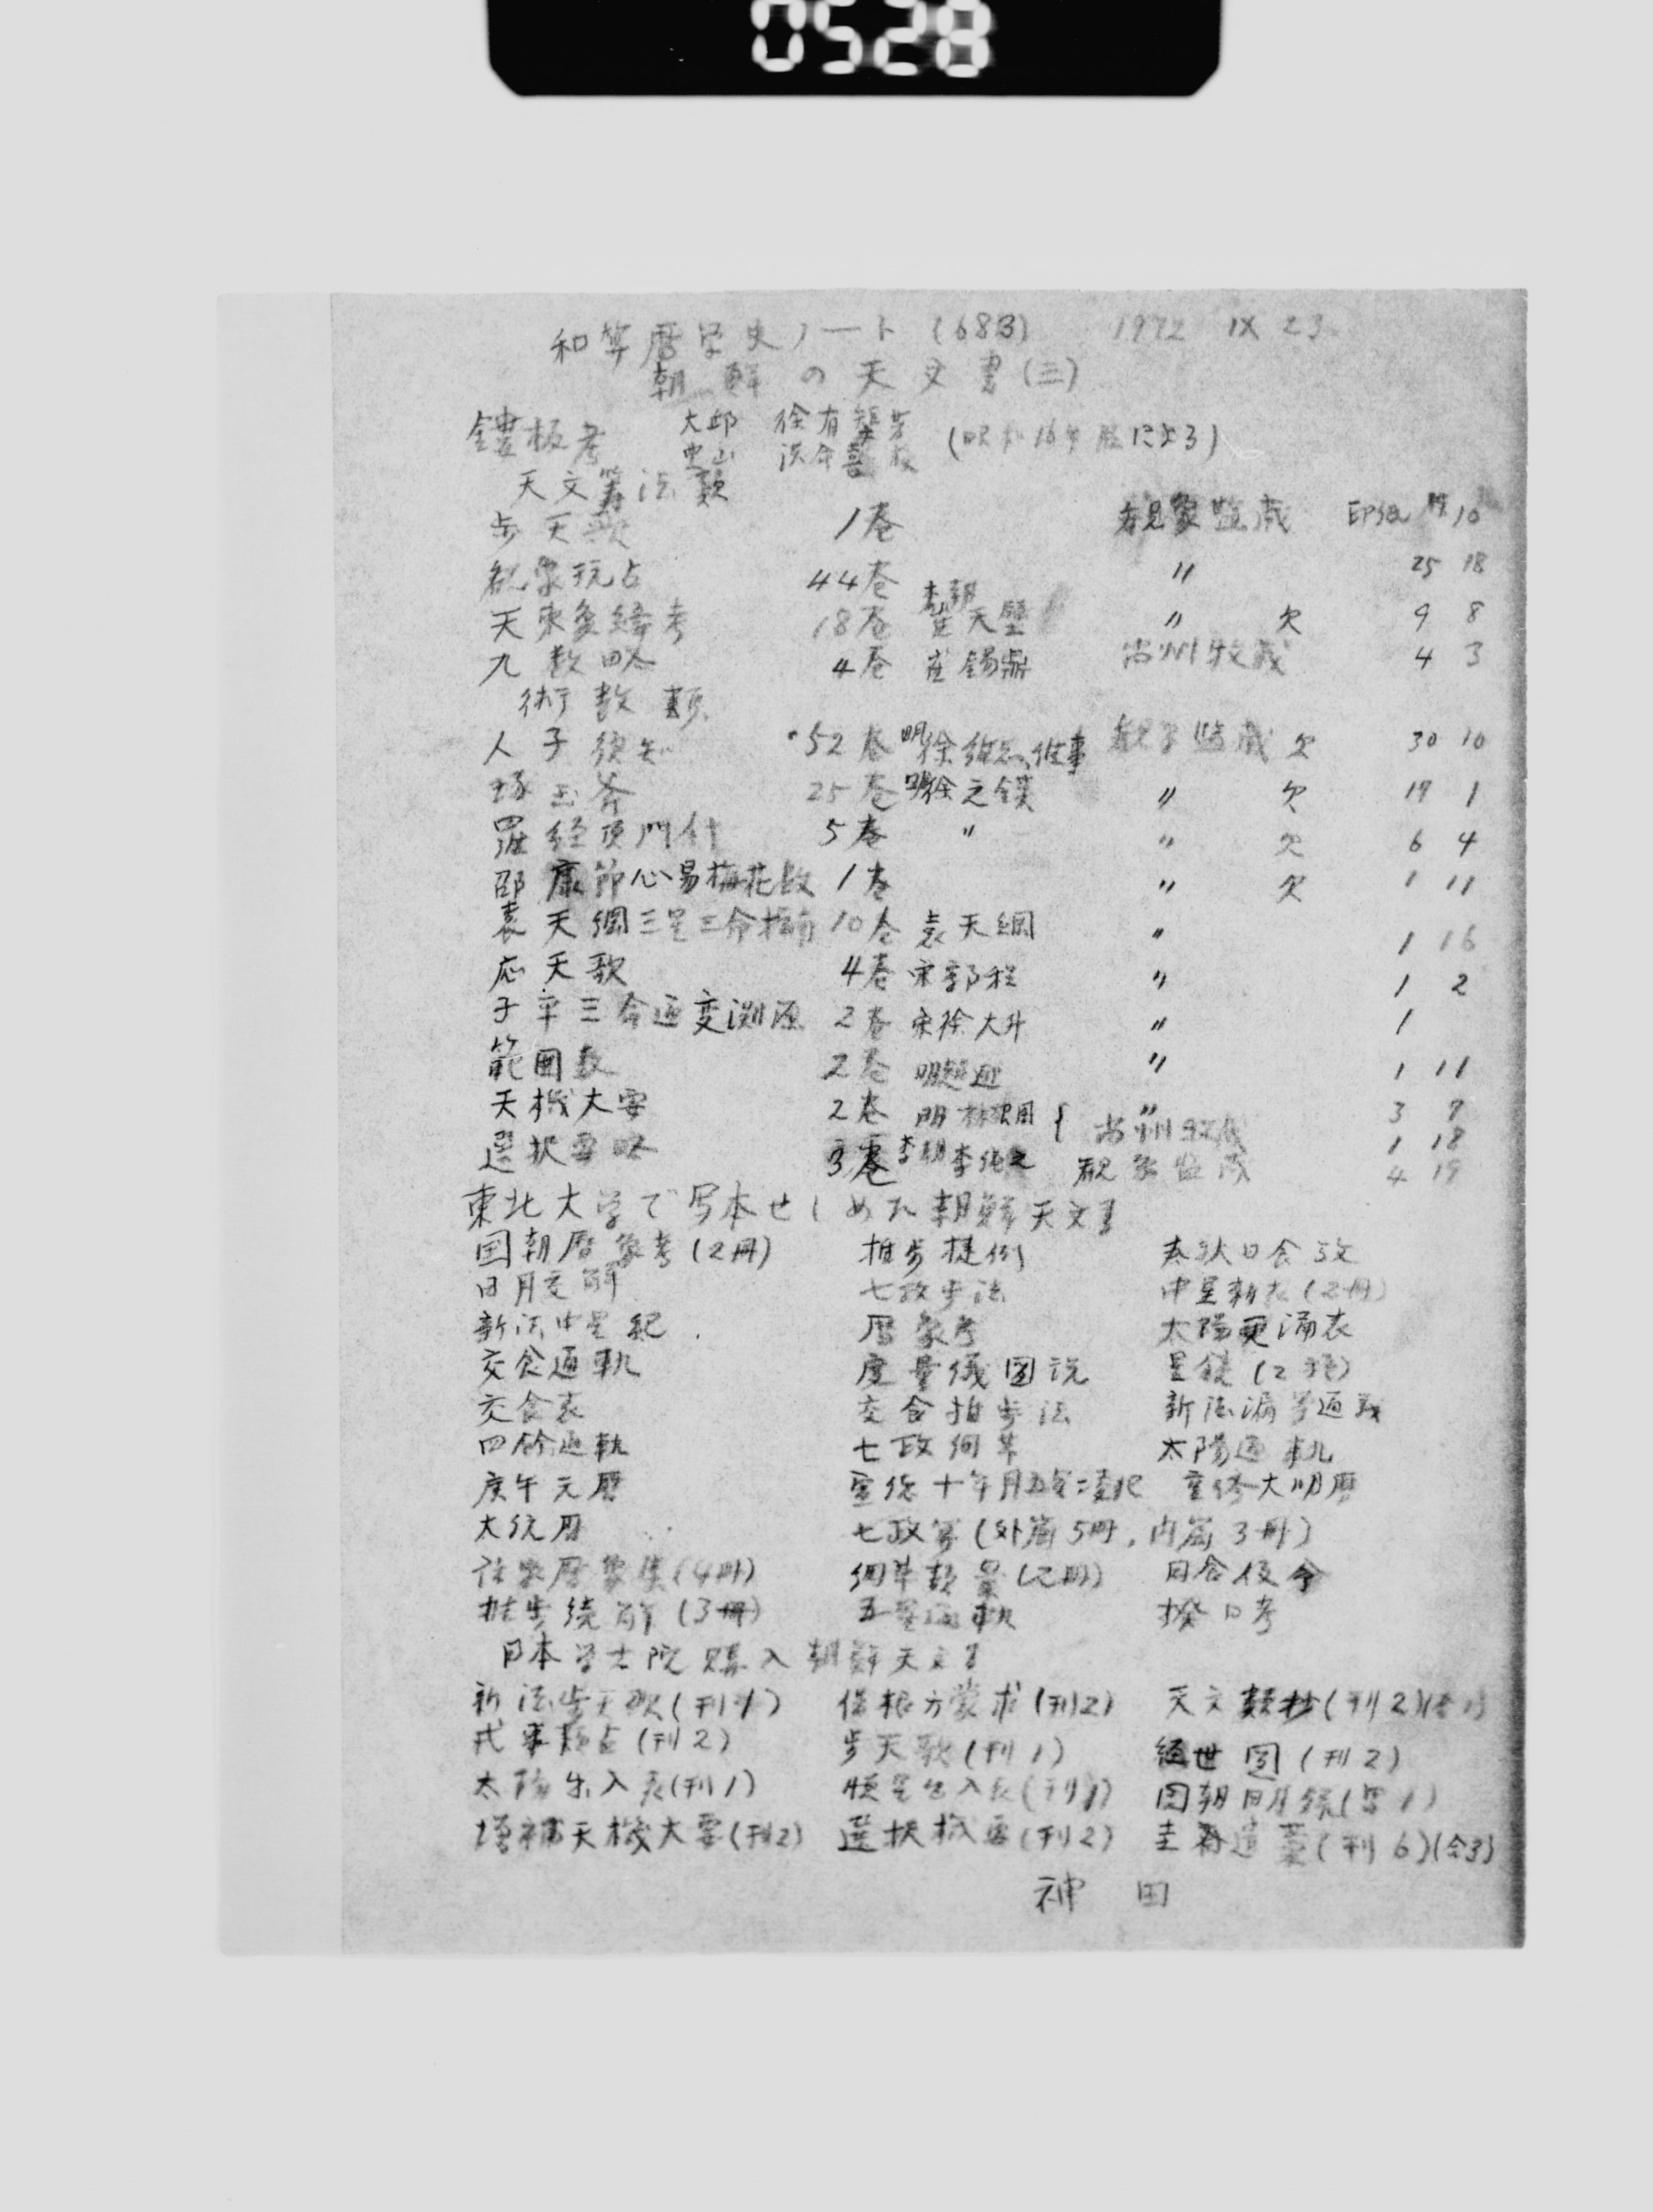 0528
和算暦学史ノート (683) 1972 IX 23
朝鮮の天文書(三)
鏤板考 大邱 徐有榘 (昭和16年版による)
天文筭法類
歩天歌 1巻 観象監蔵 印紙 10
観象玩占 44巻 〃 25 18
天東象緯考 18巻 李朝 崔天璧 〃 欠 9 8
九数略 4巻 崔錫鼎 尚州牧蔵 4 3
術数類
人子須知 52巻 明徐維志、維事 観象監蔵 欠 30 10
琢玉斧 25巻 明徐之鏌 〃 欠 19 1
羅経頂門針 5巻 〃 〃 欠 6 4
邵康節心易梅花数 1巻 〃 欠 1 11
袁天綱三星三命指南 10巻 袁天綱 〃 1 16
応天歌 4巻 宋郭程 〃 1 2
子平三命通変淵源 2巻 宋徐大升 〃 1
範囲数 2巻 明趙迎 〃 1 11
天機大要 2巻 明林紹周 { 〃 3 9
尚州牧蔵 1 18
選択要略 3巻 李朝李純之 観象監蔵 4 19
東北大学で写本せしめた朝鮮天文書
国朝暦象考 (2冊) 推歩捷例 春秋日食攷
日月交解 七政歩法 中星新表 (2冊)
新法中星紀 暦象考 太陽更漏表
交食通軌 度量儀図説 星鏡
交食表 交食推歩法 新法漏籌通義
四餘通軌 七政細草 太陽通軌
庚午元暦 宣徳十年月五星凌犯 重修大明暦
大統暦 七政算 (外篇5冊, 内篇3冊)
諸家暦象集 (4冊) 細草類彙 (2冊)
推歩続解 (3冊) 五星通軌 揆日考
日本学士院購入朝鮮天文書
新法歩天歌 (刊1) 借根方蒙求 (刊2) 天文類抄 (刊2)(合1)
戎事類占 (刊2) 歩天歌 (刊1) 経世図 (刊2)
太陽出入表 (刊1) 恒星出入表 (刊1)
増補天機大要 (刊2) 選択機要 (刊2) 圭斎遺藁 (刊6)(合3)
神田